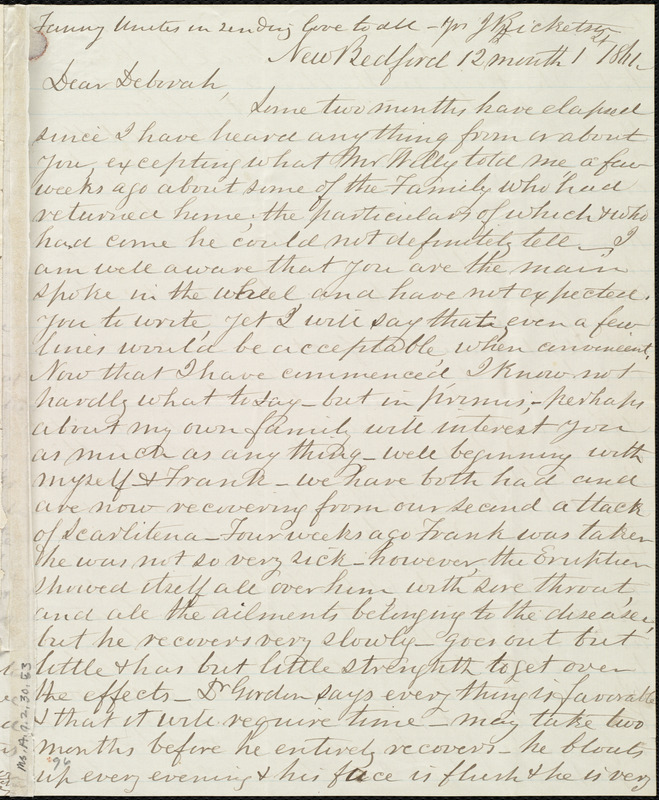 Fanny Unites in sending love to all – Yrs J Ricketson
New Bedford 12 month 1st 1861
Dear Deborah,
Some two months have elapsed
since I have heard anything from or about
you, excepting what Mr Willy told me a few
weeks ago about some of the Family who had
returned home, the particulars of which & who
had come he could not definitely tell – I
am well aware that you are the main
spoke in the wheel and have not expected
you to write, yet I will say that even a few
lines would be acceptable, when convenient.
Now that I have commenced I know not
hardly what to say – but in primus, – perhaps
about my own family will interest you
as much as any thing – well beginning with
myself & Frank – we have both had and
are now recovering from our second attack
of Scarlitena – Four weeks ago Frank was taken
he was not so very sick – however, the Eruption
showed itself all over him with sore throat,
and all the ailments belonging to the disease,
but he recovers very slowly – goes out but
little & has but little strenghth to get over
the effects – Dr Gordon says every thing is favorable
& that it will require time – may take two
months before he entirely recovers – he bloats
up every evening & his face is flush & he is very
Ms. A. 9. 2. 30. 83